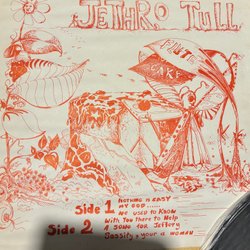 JETHRO TULL
FLUTE
CAKE
Side 1 NOTHING IS EASY
MY GOD.....
WE USED TO KNOW
Side 2 With You There to Help
A SONG FOR JEFFERY
Sossity, your a woman